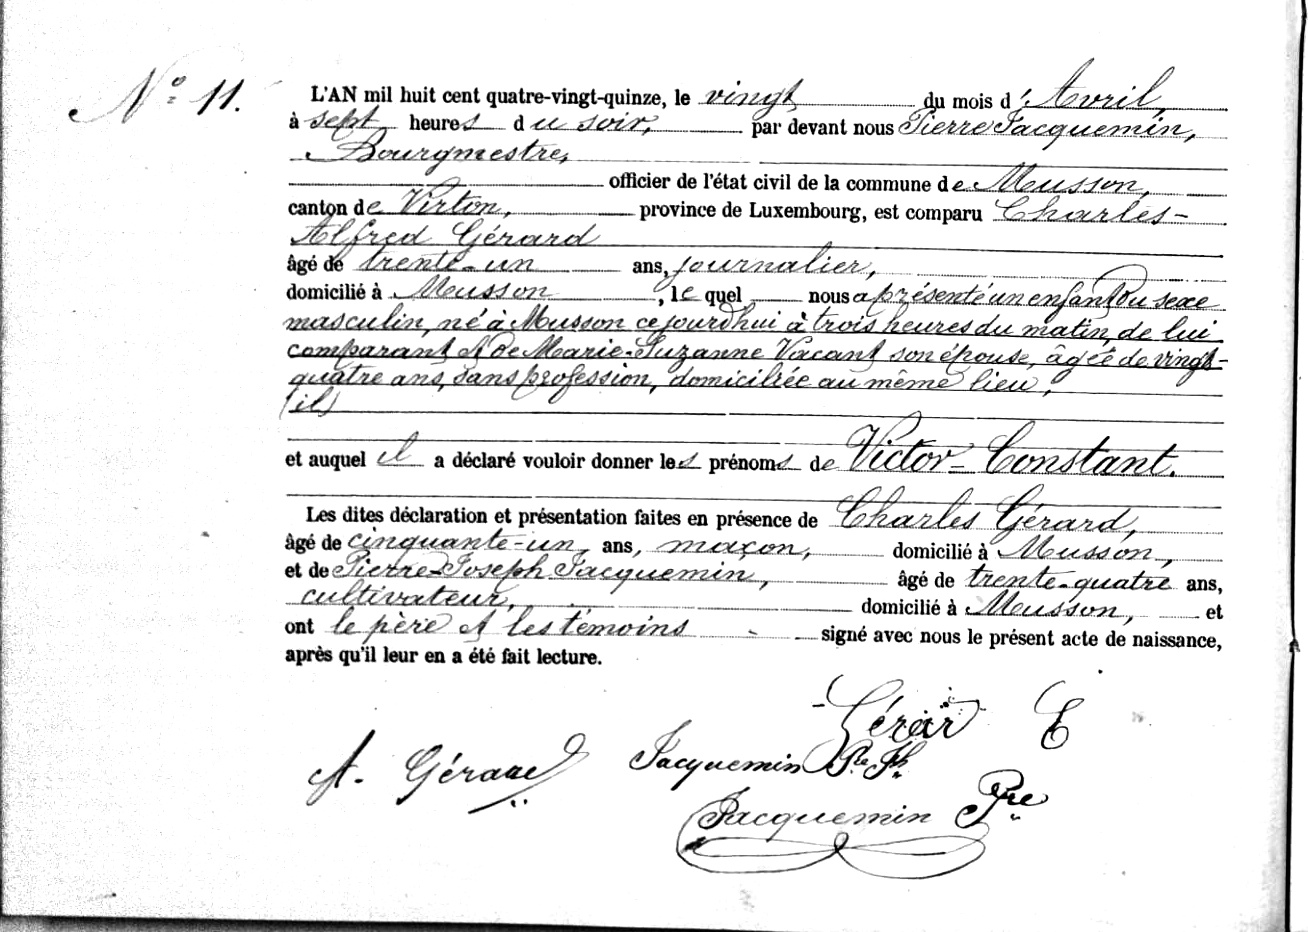 N° 11.
L'AN mil huit cent quatre-vingt-quinze, le vingt du mois d'Avril,
à sept heures du soir, par devant nous Pierre Jacquemin,
Bourgmestre,
officier de l'état civil de la commune de Musson,
canton de Virton, province de Luxembourg, est comparu Charles-
Alfred Gérard
âgé de trente-un ans, journalier,
domicilié à Musson, lequel nous a présenté un enfant du sexe
masculin, né à Musson ce jourd'hui à trois heures du matin, de lui
comparant et de Marie-Suzanne Vacant son épouse, âgée de vingt-
quatre ans, sans profession, domiciliée au même lieu,
(il)
et auquel il a déclaré vouloir donner les prénoms de Victor-Constant.
Les dites déclaration et présentation faites en présence de Charles Gérard,
âgé de cinquante-un ans, maçon, domicilié à Musson,
et de Pierre-Joseph Jacquemin, âgé de trente-quatre ans,
cultivateur, domicilié à Musson, et
ont le père et les témoins signé avec nous le présent acte de naissance,
après qu'il leur en a été fait lecture.
Gérar
A. Gérard Jacquemin Pre Jh
Jacquemin Pre